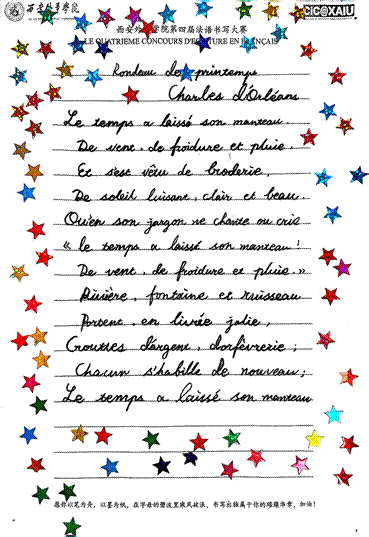 西安外国语学院
CICOXAIU
西安外 学院第四届法语书写大赛
LE QUATRIEME CONCOURS D'ECRITURE EN FRANÇAIS
Rondeau de printemps
Charles d'Orléans
Le temps a laissé son manteau.
De vent, de froidure et pluie,
Et s'est vêtu de broderie,
De soleil luisant, clair et beau.
Qu'en son jargon ne chante ou crie
« le temps a laissé son manteau !
De vent, de froidure et pluie. »
Rivière, fontaine et ruisseau
Portent, en livrée jolie,
Gouttes d'argent, d'orfèvrerie ;
Chacun s'habille de nouveau ;
Le temps a laissé son manteau
愿你以笔为舟，以墨为帆，在字母的碧波里乘风破浪，书写出独属于你的璀璨华章，加油！